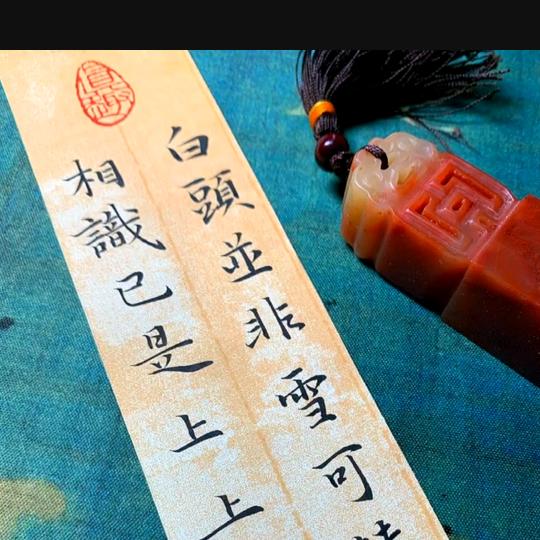 白頭並非雪可
相識已是上上